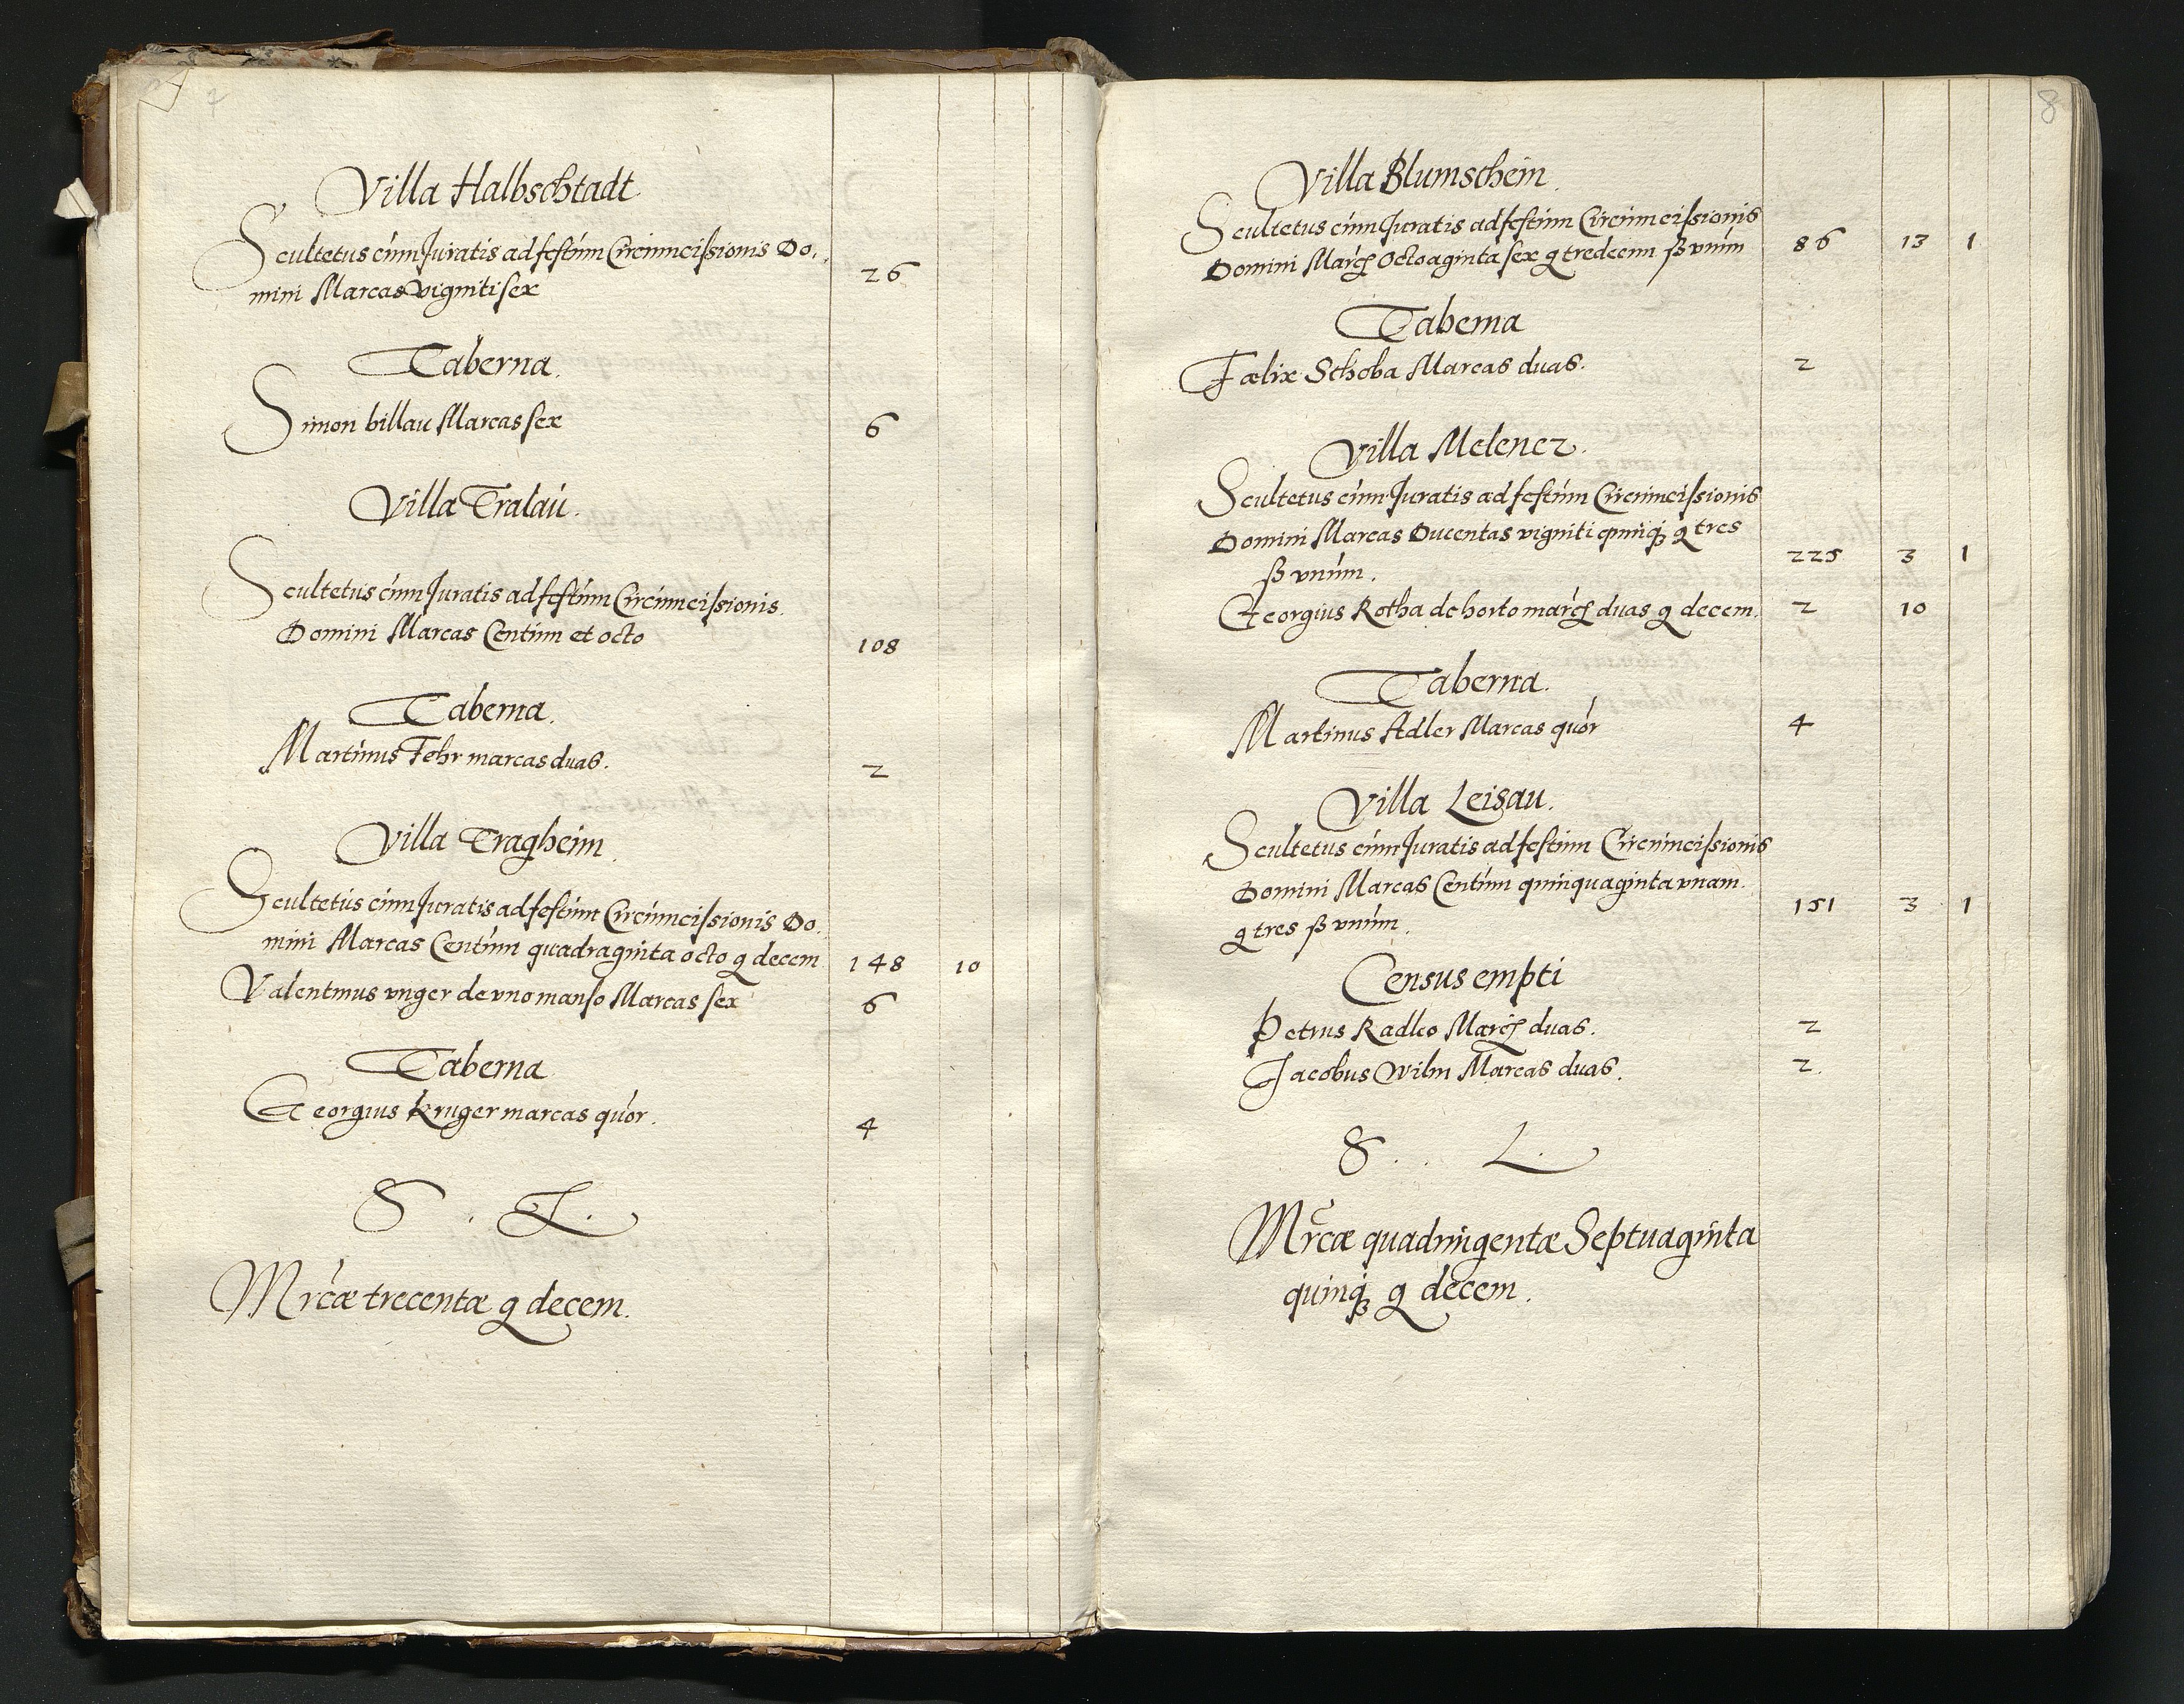 7
Villa Halbschtadt
Scultetus cum Juratis ad festum Circumcissionis Do.
mini Marcas vigniti sex 26
Taberna.
Simon billau Marcas sex 6
Villa Tralau.
Scultetus cum Juratis ad festum Circumcissionis.
Domini Marcas Centum et octo 108
Taberna.
Martinus Fehr marcas duas. 2
Villa Tragheim.
Scultetus cum Juratis ad festum Circumcissionis Do.
mini Marcas Centum quadraginta octo g decem 148 10
Valentinus vnger de vno manso Marcas sex 6
Taberna
Georgius Kruger marcas quor. 4
S. L.
Mrcæ trecentæ g decem.
8
Villa Blumschein.
Scultetus cum Juratis ad festum Circumcissionis
Domini Marcs Octoaginta sex g tredecim ß vnum 86 13 1
Taberna
Fælix Schoba Marcas duas. 2
Villa Melencz.
Scultetus cum Juratis ad festum Circumcissionis
Domini Marcas Ducentas vigniti quinq3 g tres
ß vnum. 225 3 1
Georgius Rotha de horto marcs duas g decem. 2 10
Taberna.
Martinus Adler Marcas quor 4
Villa Leisau.
Scultetus cum Juratis ad festum Circumcissionis
Domini Marcas Centum quinquaginta vnam.
g tres ß vnum. 151 3 1
Census empti
Petrus Radleo Marcs duas. 2
Jacobus Wilm Marcas duas. 2.
S. . L.
Mrcæ quadringentæ Septuaginta
quinq3 g decem.